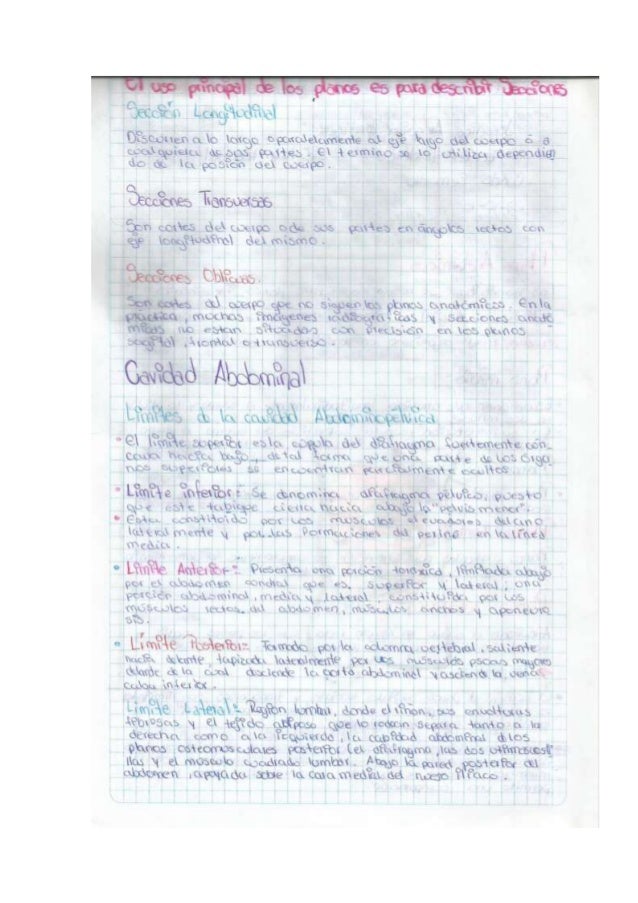 El uso principal de los planos es para describir Secciones
Sección Longitudinal
Discurren a lo largo o paralelamente al eje largo del cuerpo ó a
cualquiera de sus partes. El termino se lo utiliza dependien
do de la posión del cuerpo.
Secciones Transversas
Son cortes del cuerpo o de sus partes en ángulos rectos con
eje longitudinal del mismo.
Secciones Oblicuas.
Son cortes del cuerpo que no siguen los planos anatómicos. En la
practica, muchas imágenes radiograficas y secciones anató
micas no estan situadas con precisión en los planos
sagital, frontal o transverso.
Cavidad Abdominal
Limites de la cavidad Abdominopélvica
El límite superior es la cúpula del diafragma fuertemente cón
cava hacia bajo, de tal forma que una parte de los órga
nos superiores se encuentran parcialmente ocultos.
Límite inferior: Se denomina diafragma pélvico, puesto
que este tabique cierra hacia abajo la "pelvis menor".
Esta constituido por los musculos elevadores del ano
lateralmente y por las formaciones del periné en la línea
media.
Límite Anterior: Presenta una porción torácica, limitada abajo
por el abdomen condral que es, superior y lateral, una
porción abdominal, media y lateral, constituida por los
músculos rectos del abdomen, músculos anchos y aponeuro
sis.
Límite Posterior: Formado por la columna vertebral, saliente
hacia delante, tapizada lateralmente por los musculos psoas mayores
delante de la cual desciende la aorta abdominal y asciende la vena
cava inferior.
Límite Lateral: Región lumbar, donde el riñon, sus envolturas
febrosas y el tejido adiposo que lo rodean separa tanto a la
derecha como a la izquierda, la cavidad abdominal de los
planos osteomusculares posterior (el diafragma, las dos ultimas costi
llas y el músculo cuadrado lumbar. Abajo la pared posterior del
abdomen, apoyada sobre la cara medial del hueso iliaco.